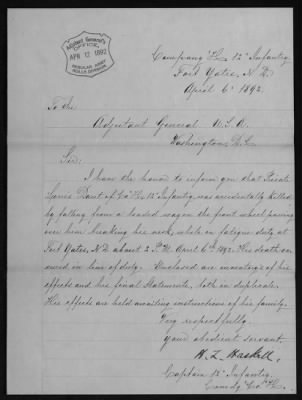 Adjutant General's
OFFICE,
APR 12 1892
REGULAR ARMY
ROLLS DIVISION
Company "H" 12" Infantry,
Fort Yates, N.D.
April 6" 1892.
To the
Adjutant General U.S.A.
Washington, D.C.
Sir:
I have the honor to inform you that Private
of Co "H" 12" Infantry, was accidentally killed,
by falling from a loaded wagon the front wheel passing
over him breaking his neck, while on fatigue duty at
Fort Yates, N.D. about 2 P.M. April 6th 1892. His death oc-
cured in line of duty. Enclosed are inventory's of his
effects and his final Statements, both in duplicate.
His effects are held awaiting instructions of his family.
Very respectfully,
Your obedient servant.
W. L. Haskell,
Captain 12" Infantry,
Comdg Co "H".